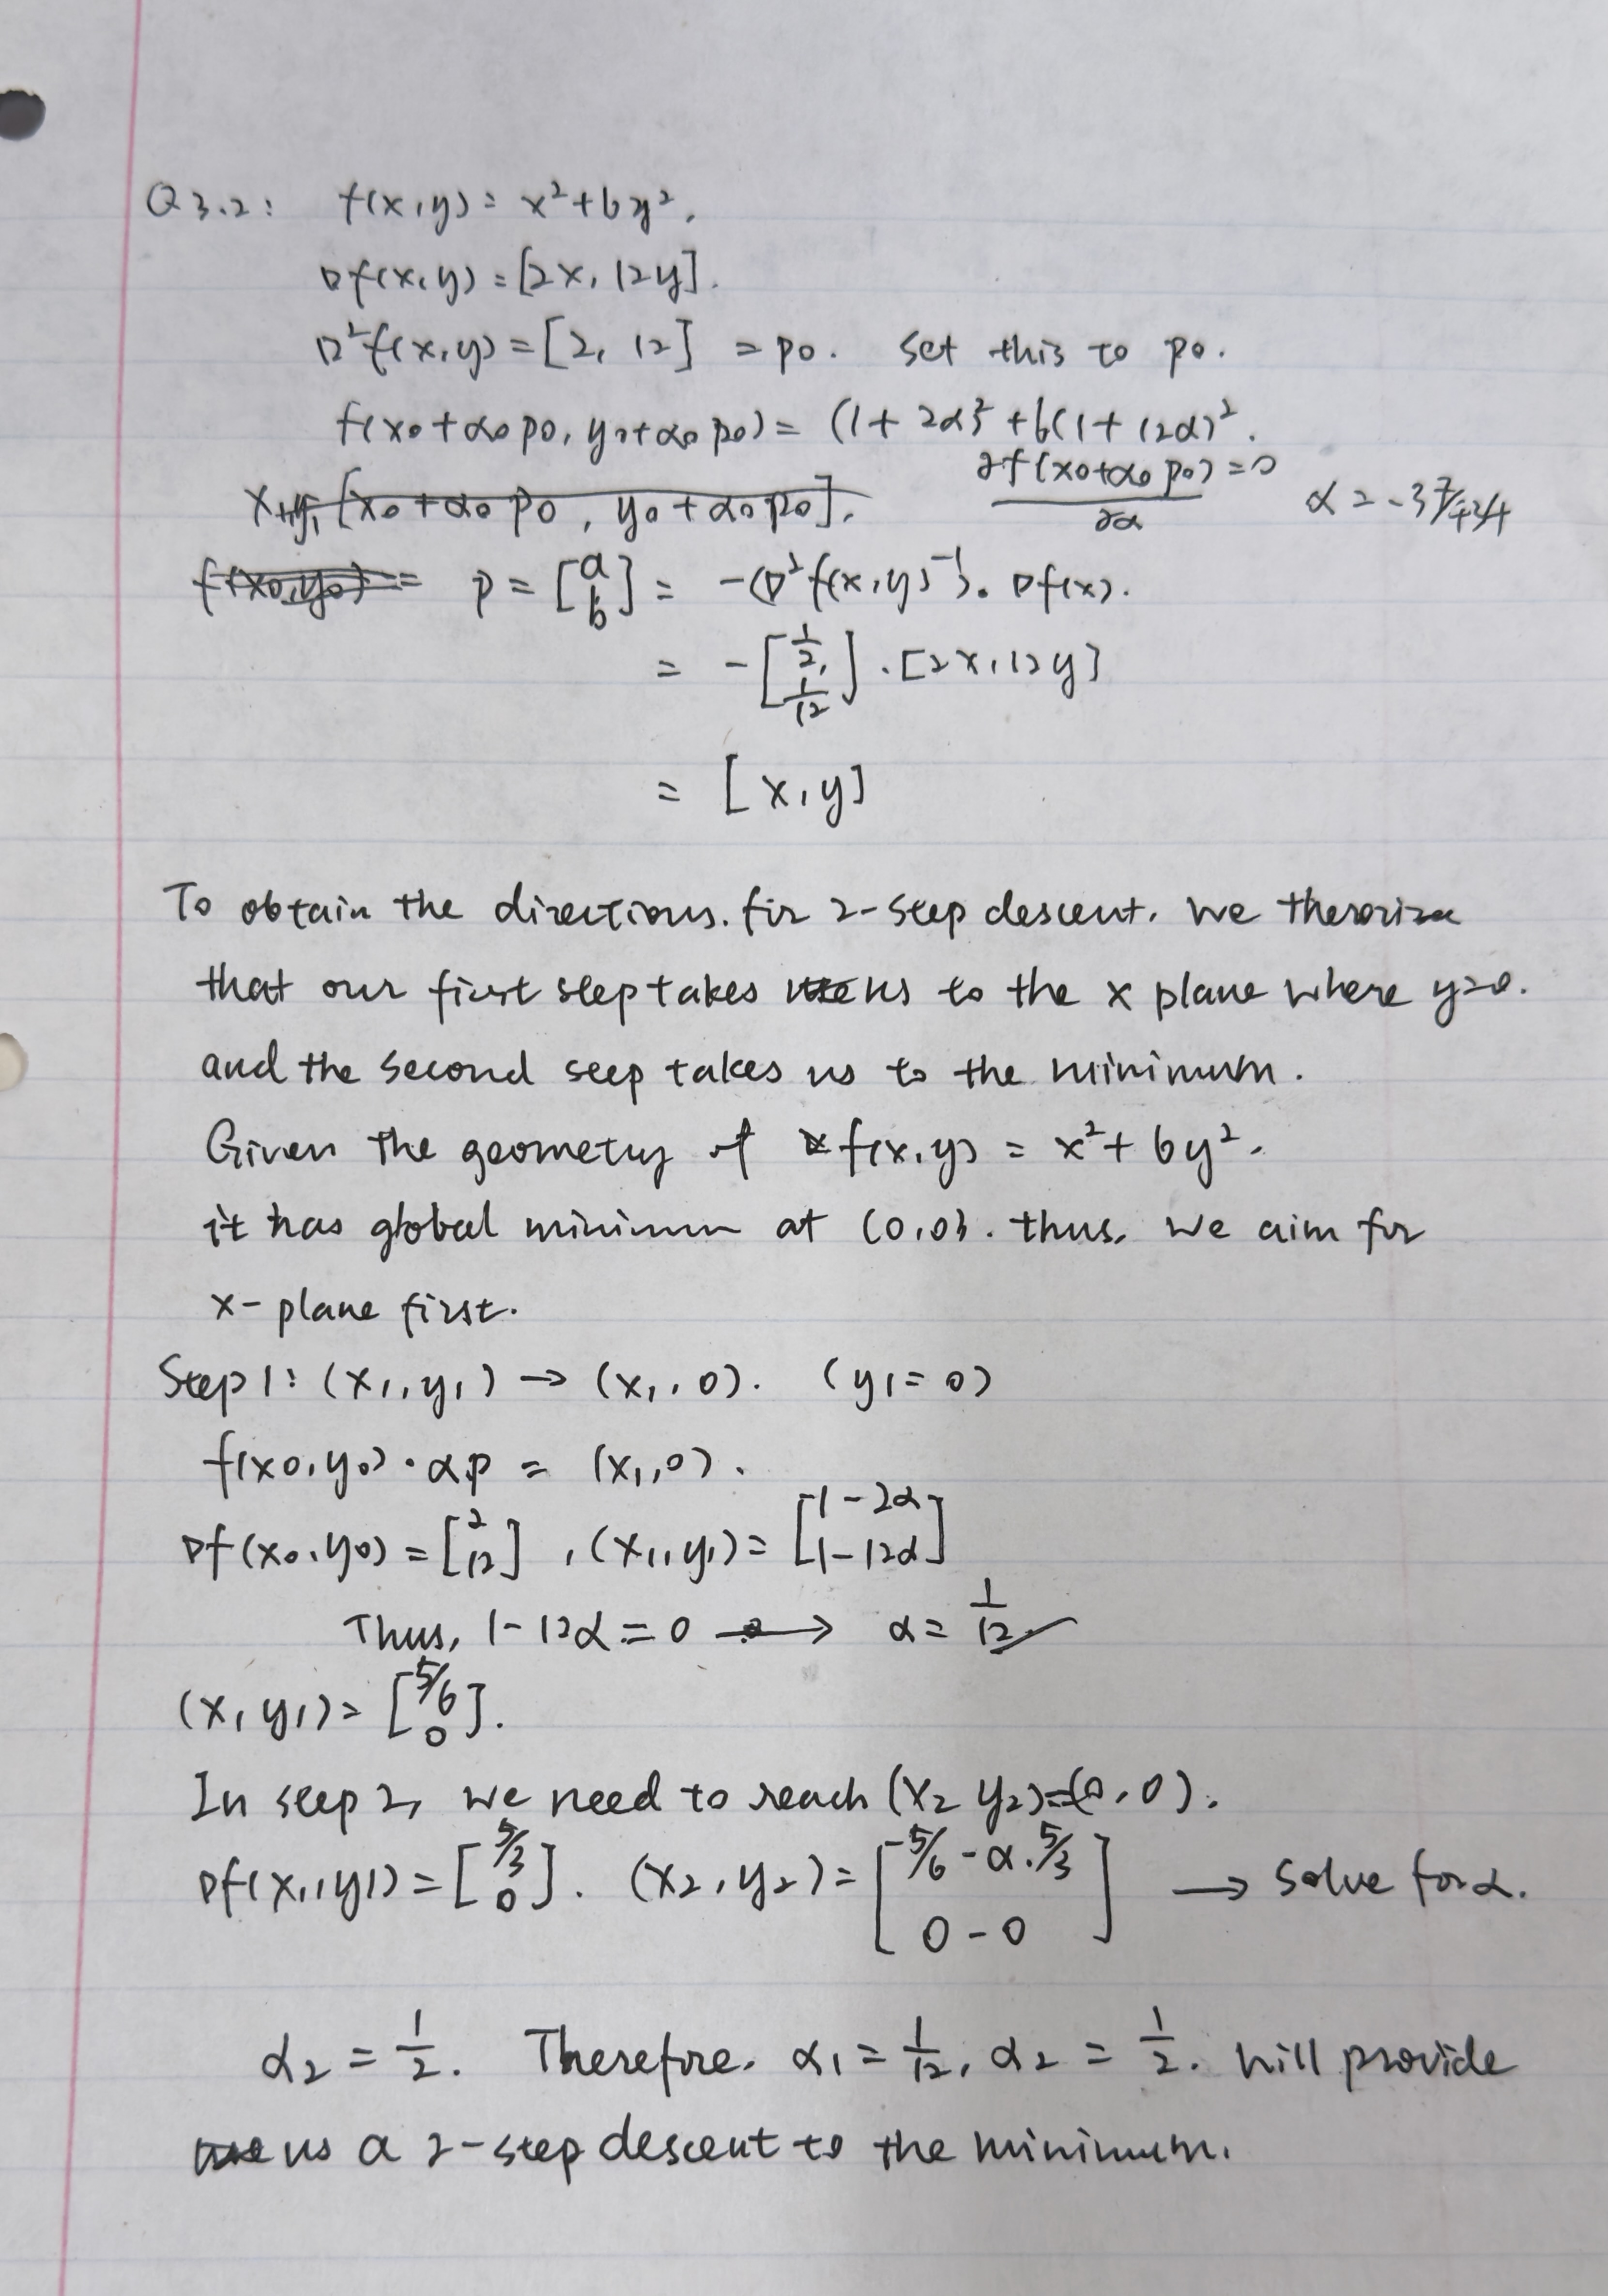 Q3.2: f(x,y) = x²+6y².
∇f(x,y) = [2x, 12y].
∇²f(x,y) = [2, 12] = p0. Set this to p0.
f(x0+α0p0, y0+α0p0) = (1+2α)²+6(1+12α)².
x1,y1 [x0+α0p0, y0+α0p0]. ∂f(x0+α0p0)=0 / ∂α α = -37/434
f(x0,y0) = p = [a b] = -(∇²f(x,y)⁻¹). ∇f(x).
= -[1/2, 1/12] . [2x, 12y]
= [x, y]
To obtain the directions. for 2-step descent. we theorize
that our first step takes us to the x plane where y=0.
and the second step takes us to the minimum.
Given the geometry of f(x,y) = x²+6y².
it has global minimum at (0,0). thus, we aim for
x-plane first.
Step 1: (x1,y1) → (x1,0). (y1=0)
f(x0,y0)·αp = (x1,0).
∇f(x0,y0) = [2 12], (x1,y1) = [1-2α 1-12α]
Thus, 1-12α = 0 → α = 1/12
(x1 y1) = [5/6 0].
In step 2, we need to reach (x2 y2)=(0,0).
∇f(x1,y1) = [5/3 0]. (x2,y2) = [5/6-α.5/3 0-0] → Solve for α.
α2 = 1/2. Therefore. α1 = 1/12, α2 = 1/2. will provide
us a 2-step descent to the minimum.